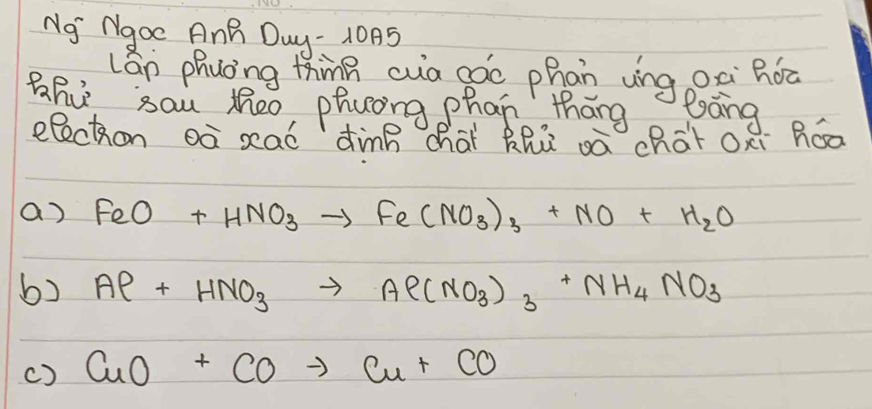 Ng~ Ngọc Anh Duy - 10A5
Lập phương trình của các phản ứng oxi hóa
khử sau theo phương pháp thăng bằng
electron và xác định chất khử và chất oxi hóa
a) FeO + HNO₃ → Fe(NO₃)₃ + NO + H₂O
b) Al + HNO₃ → Al(NO₃)₃ + NH₄NO₃
c) CuO + CO → Cu + CO